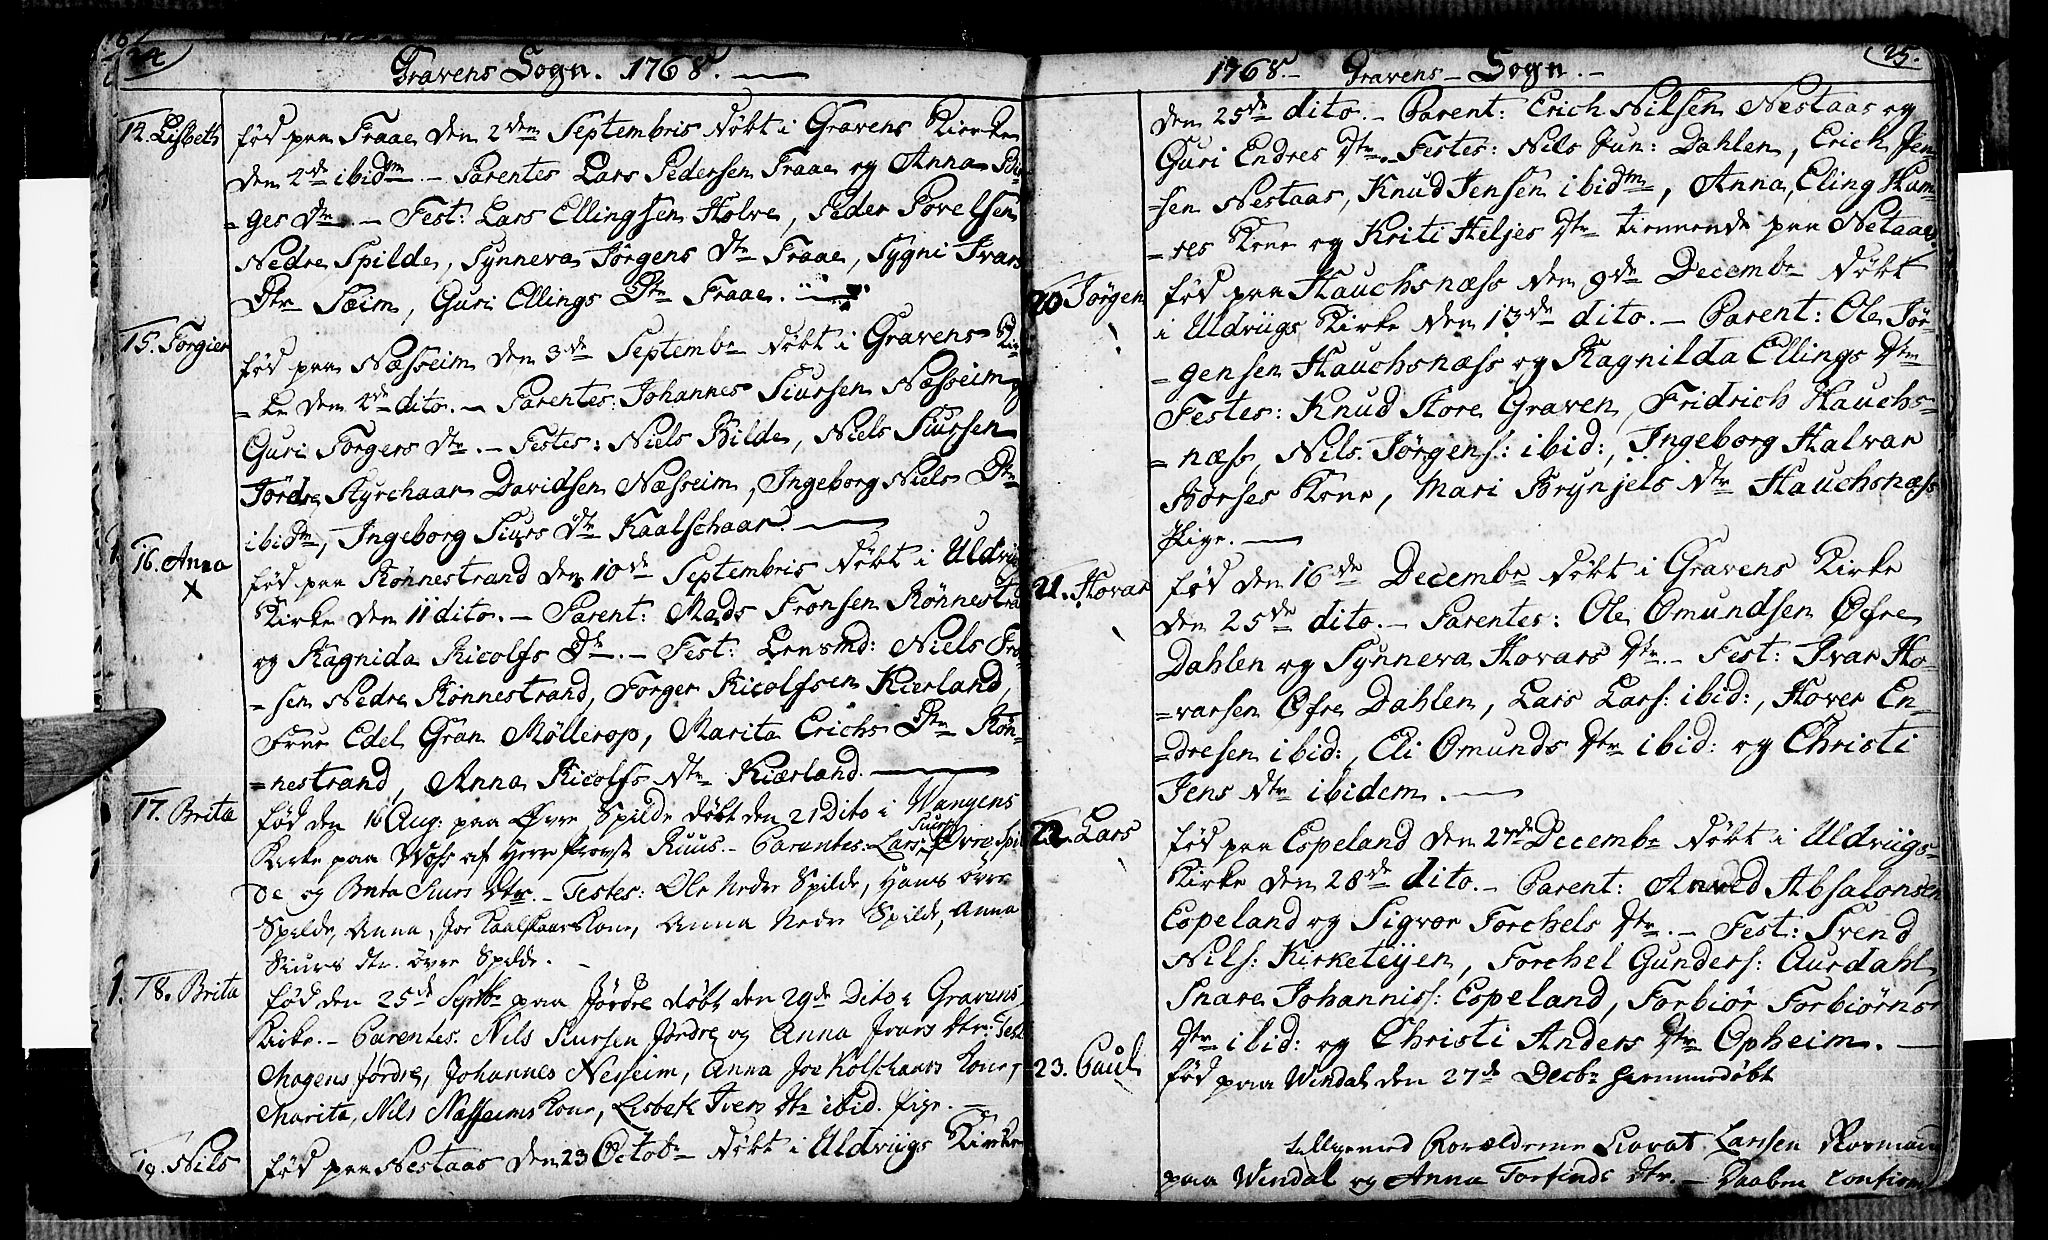 24
Gravens Sogn. 1768.
14. Lisbeth
fød paa Fraae den 2den Septembris døbt i Gravens Kirke
den 4de ibidm. - Parentes Lars Pedersen Fraae og Anna
=ges dtr. - Fest: Lars Ellingsen Holve, Peder Povelsen
Nedre Spilde, Synneva Jørgens dtr Fraae, Sygni Ivars
Dtr Sæim, Guri Ellings Dtr Fraae.
15. Torgier
fød paa Næsseim den 3de Septembr døbt i Gravens Kir=
=ke den 4de dito. - Parentes: Johannes Siursen Næsseim og
Guri Torgers dtr. - Festes: Niels Bilde, Niels Siursen
Jørdre, Styrchaar Davidsen Næsseim, Ingeborg Niels Dtr
ibidm, Ingeborg Siurs dtr Kaalschaar.
16. Anna
x
fød paa Rønnestrand den 10de Septembris døbt i Uldviigs
Kirke den 11 dito. - Parent: Mads Fronsen Rønnestrand
og Ragnida Ricolfs Dtr. - Fest: Lensmd: Niels
=sen Nedre Rønnestrand, Torger Ricolfsen Kierland,
Frue Edel Gran Møllerop, Marita Erichs Dtr Røn=
=nestrand, Anna Ricolfs dtr Kiærland.
17. Brita
fød den 16 Aug: paa Øvre Spilde døbt den 21 Dito i Wangens
Kirke paa Woss af Herr Provst Ruus. - Parentes: Lars Siurs: Øvre Spil
de og Brita Siurs dtr. - Testes: Ole Nedre Spilde, Hans øvre
Spilde, Anna, Joe Kaalskaars Kone, Anna Nedre Spilde, Anna
Siurs dtr. övre Spilde.
18. Brita
fød den 25de Septbr paa Jørdre døbt den 29de Dito i Gravens
Kirke. - Parentes: Nils Siursen Jørdre og Anna Ivars dtr: Test:
Mogens Jørdre, Johannes Nesseim, Anna Joe Kolschaars Kone,
Marita, Nils Nesseims Kone, Lisbeth Ivers dtr ibid. Pige.
19. Nils
fød paa Nestaas den 23 Octobr døbt i Uldviigs Kirke
25.
1768. - Gravens - Sogn. -
den 25de dito. - Parent: Erich Nilsen Nestaas og
Guri Endres dtr. Festes: Nils Jun: Dahlen, Erich Jen=
=sen Nestaas, Knud Jensen ibidm, Anna, Eling Ham=
=res Kone og Kriti Heljes dtr tiennende paa Netaas
20. Jørgen
fød paa Hauchsnæss den 9de Decembr døbt
i Uldviigs Kirke den 13de dito. - Parent: Ole Jør=
=gensen Hauchsnæss og Ragnilda Ellings dtr
Festes: Knud Store Graven, Fridrich Hauchs=
=næss, Nils Jørgens: ibid:, Ingeborg Halvar
Børses Kone, Mari Brynjels dtr Hauchsnæss
Pige.
21. Hovar
fød den 16de Decembr døbt i Gravens Kirke
den 25de dito. - Parentes: Ole Omundsen Øfre
Dahlen og Synneva Hovars dtr. - Fest: Ivar Ho=
=varsen Øfre Dahlen, Lars Lars: ibid:, Hover En=
=dresen ibid:, Eli Omunds dtr ibid: og Christi
Jens dtr ibidem.
22. Lars
fød paa Espeland den 27de Decembr døbt i Uldviigs=
Kirke den 28de dito. - Parent: Absalonsen
Espeland og Sigvor Torchels dtr. - Fest: Svend
Nils: Kirketeijen, Torchel Gunders: Aurdahl,
Snare Johanniss: Espeland, Torbiør Torbiørns
dtr ibid: og Christi Anders dtr Opheim.
23. Paul
fød paa Windal den 27de Decbr hiemmedøbt
Larsen
paa Windal og Anna Torfinds dtr. - Daaben confirm